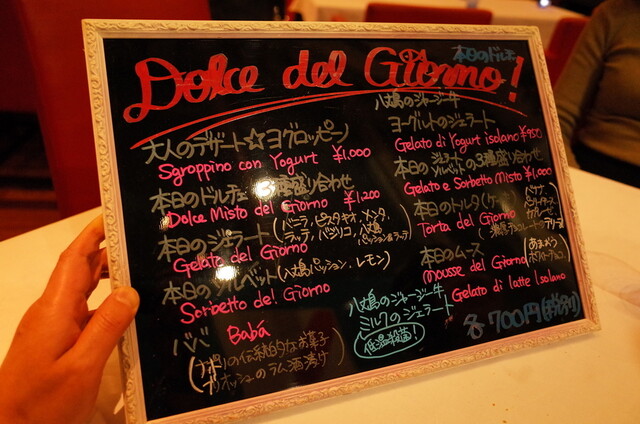 Dolce del Giorno!
本日のドルチェ
大人のデザート☆ヨグロッピーノ
Sgroppino con Yogurt ¥1.000
本日のドルチェ3種盛り合わせ
Dolce Misto del Giorno ¥1.200
本日のジェラート
Gelato del Giorno
(バニラ、ピスタチオ、メンタ、
ラッテ、バジリコ、八丈島
本日のソルベット(八丈島パッション、レモン)
Sorbetto del Giorno
ババ Babà
(ナポリの伝統的なお菓子
ブリオッシュのラム酒漬け)
八丈島のジャージー牛
ヨーグルトのジェラート
Gelato di Yogurt isolano ¥950
本日のジェラート
ソルベットの3種盛り合わせ
Gelato e Sorbetto Misto ¥1.000
本日のトルタ
Torta del Giorno
本日のムース
Mousse del Giorno
八丈島のジャージー牛
ミルクのジェラート
低温殺菌!
Gelato di latte Isolano
各700円